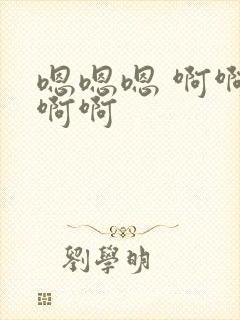 嗯嗯嗯 啊啊
啊啊
劉學明